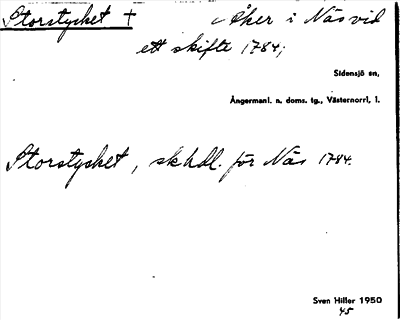 Storstycket + Åker i Näs vid
ett skifte 1784;
Sidensjö sn,
Ångermanl. n. doms. tg., Västernorrl, l.
Storstycket, skhdl. för Näs 1784.
Sven Hiller 1950
45